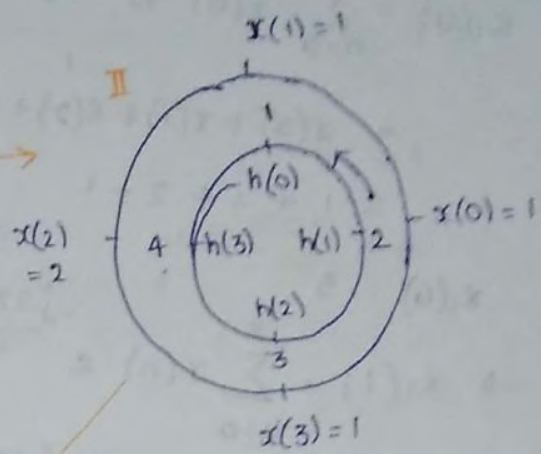 x(1) = 1
II
1
h(0)
x(2)
= 2
4
h(3)
h(1)
2
x(0) = 1
h(2)
3
x(3) = 1